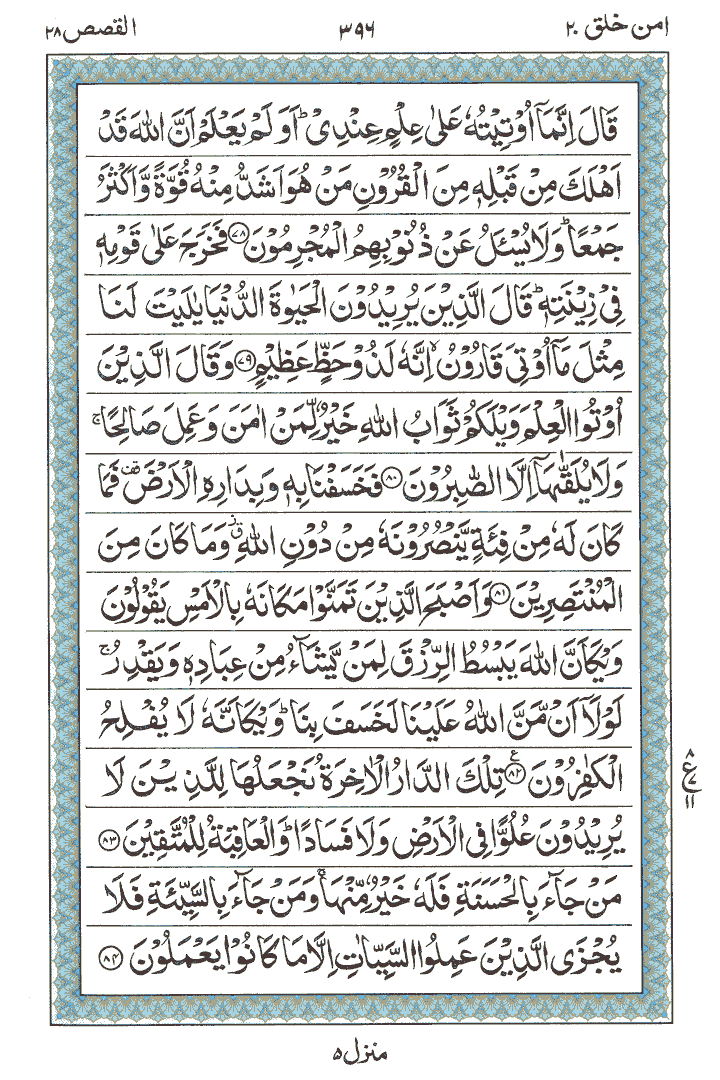 امن خلق ۲۰
۳۹۶
القصص ۲۸
قَالَ اِنَّمَاۤ اُوْتِيْتُهٗ عَلٰى عِلْمٍ عِنْدِيْ ؕ اَوَ لَمْ يَعْلَمْ اَنَّ اللّٰهَ قَدْ
اَهْلَكَ مِنْ قَبْلِهٖ مِنَ الْقُرُوْنِ مَنْ هُوَ اَشَدُّ مِنْهُ قُوَّةً وَّ اَكْثَرُ
جَمْعًا ؕ وَ لَا يُسْـَٔلُ عَنْ ذُنُوْبِهِمُ الْمُجْرِمُوْنَ ۷۸ فَخَرَجَ عَلٰى قَوْمِهٖ
فِيْ زِيْنَتِهٖ ؕ قَالَ الَّذِيْنَ يُرِيْدُوْنَ الْحَيٰوةَ الدُّنْيَا يٰلَيْتَ لَنَا
مِثْلَ مَاۤ اُوْتِيَ قَارُوْنُ ۙ اِنَّهٗ لَذُوْ حَظٍّ عَظِيْمٍ ۷۹ وَ قَالَ الَّذِيْنَ
اُوْتُوا الْعِلْمَ وَيْلَكُمْ ثَوَابُ اللّٰهِ خَيْرٌ لِّمَنْ اٰمَنَ وَ عَمِلَ صَالِحًا ۚ
وَ لَا يُلَقّٰىهَاۤ اِلَّا الصّٰبِرُوْنَ ۸۰ فَخَسَفْنَا بِهٖ وَ بِدَارِهِ الْاَرْضَ ۫ فَمَا
كَانَ لَهٗ مِنْ فِئَةٍ يَّنْصُرُوْنَهٗ مِنْ دُوْنِ اللّٰهِ ۗ وَ مَا كَانَ مِنَ
الْمُنْتَصِرِيْنَ ۸۱ وَ اَصْبَحَ الَّذِيْنَ تَمَنَّوْا مَكَانَهٗ بِالْاَمْسِ يَقُوْلُوْنَ
وَيْكَاَنَّ اللّٰهَ يَبْسُطُ الرِّزْقَ لِمَنْ يَّشَآءُ مِنْ عِبَادِهٖ وَ يَقْدِرُ ۚ
لَوْ لَاۤ اَنْ مَّنَّ اللّٰهُ عَلَيْنَا لَخَسَفَ بِنَا ؕ وَيْكَاَنَّهٗ لَا يُفْلِحُ
الْكٰفِرُوْنَ ۸۲ ع تِلْكَ الدَّارُ الْاٰخِرَةُ نَجْعَلُهَا لِلَّذِيْنَ لَا
يُرِيْدُوْنَ عُلُوًّا فِي الْاَرْضِ وَ لَا فَسَادًا ؕ وَ الْعَاقِبَةُ لِلْمُتَّقِيْنَ ۸۳
مَنْ جَآءَ بِالْحَسَنَةِ فَلَهٗ خَيْرٌ مِّنْهَا ۚ وَ مَنْ جَآءَ بِالسَّيِّئَةِ فَلَا
يُجْزَى الَّذِيْنَ عَمِلُوا السَّيِّاٰتِ اِلَّا مَا كَانُوْا يَعْمَلُوْنَ ۸۴
۸
ع ۷
۱۱
منزل ۵